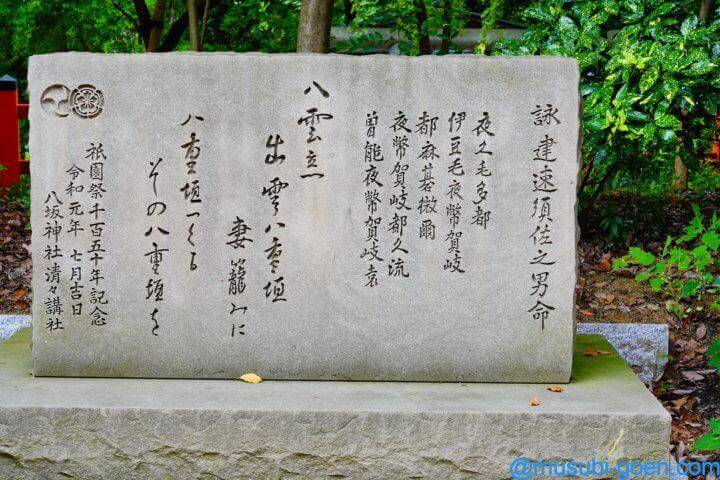 詠 建速須佐之男命
夜久毛多都
伊豆毛夜幣賀岐
都麻碁微爾
夜幣賀岐都久流
曽能夜幣賀岐袁
八雲立
出雲八重垣
妻籠みに
八重垣つくる
その八重垣を
祇園祭千百五十年記念
令和元年 七月吉日
八坂神社清々講社
@musubi-goen.com